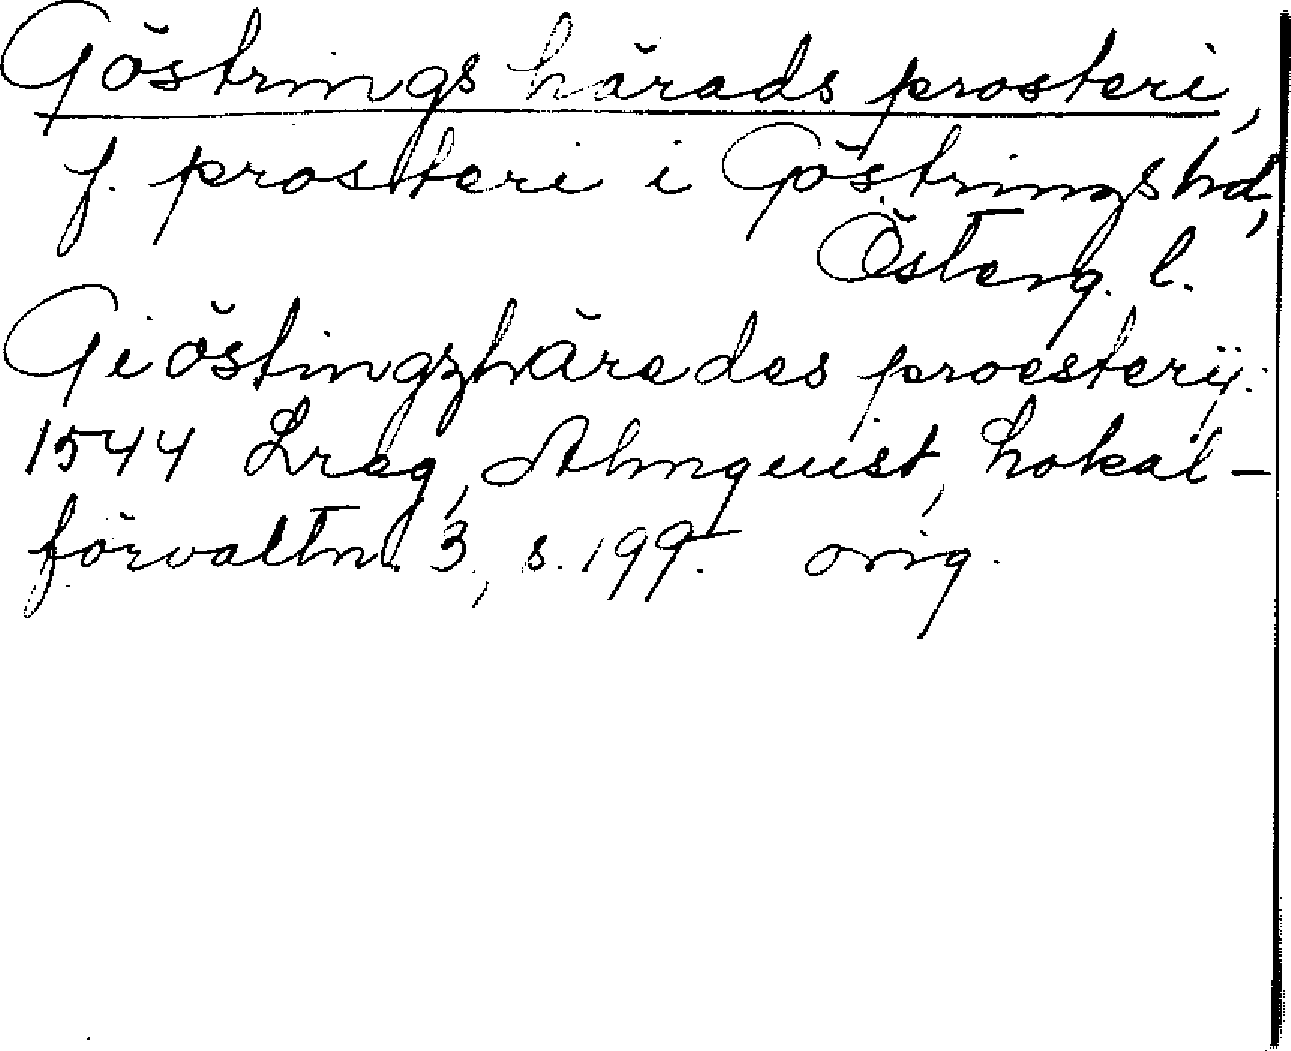 Göstrings härads prosteri,
f. prosteri i Göstrings hd,
Österg. l.
Giöstingzhäredes proesterij.
1544 Lreg, Almquist, Lokal-
förvaltn. 3, s. 199. orig.